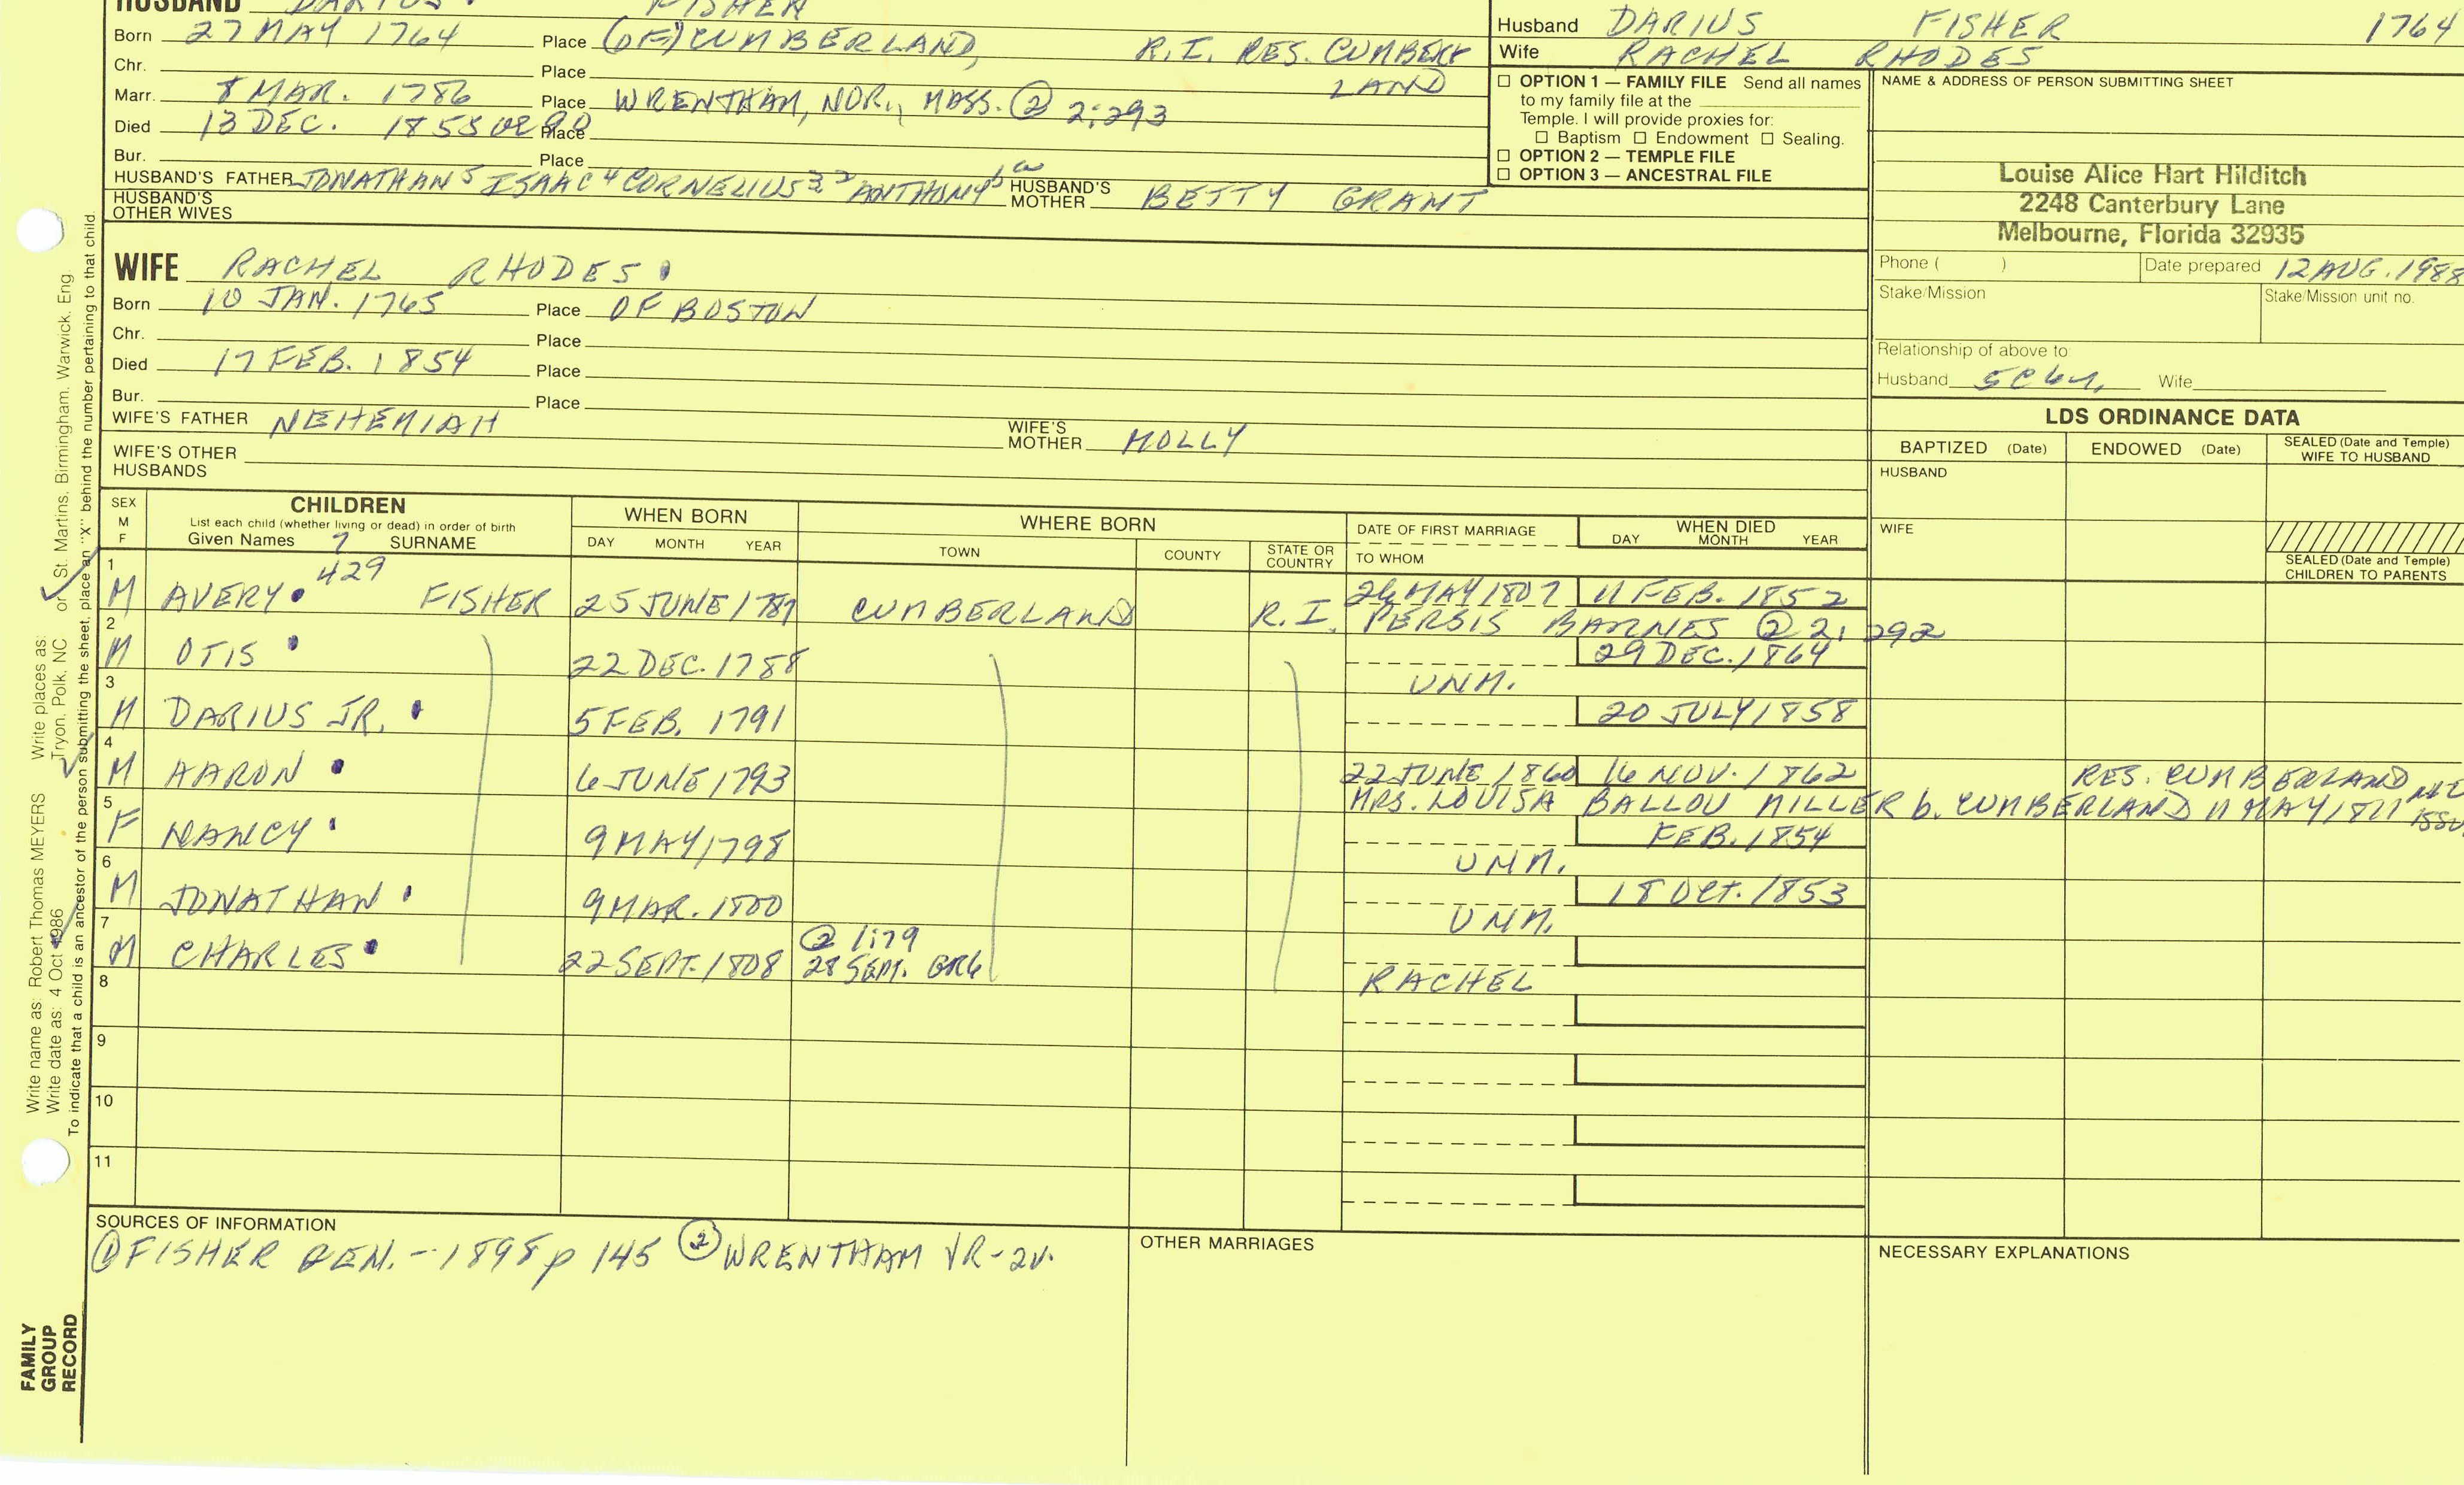 HUSBAND DARIUS FISHER
Born 27 MAY 1764 Place (OF) CUMBERLAND, R.I. RES. CUMBER
LAND
Chr. Place
Marr. 8 MAR. 1786 Place WRENTHAM, NOR., MASS. ② 2:293
Died 13 DEC. 1855 OR 90 Place
Bur. Place
HUSBAND'S FATHER JONATHAN 5 ISAAC 4 CORNELIUS 3 2 ANTHONY 1 HUSBAND'S MOTHER BETTY GRANT
HUSBAND'S OTHER WIVES
Husband DARIUS FISHER 1764
Wife RACHEL RHODES
☐ OPTION 1 — FAMILY FILE Send all names
to my family file at the
Temple. I will provide proxies for:
☐ Baptism ☐ Endowment ☐ Sealing.
☐ OPTION 2 — TEMPLE FILE
☐ OPTION 3 — ANCESTRAL FILE
NAME & ADDRESS OF PERSON SUBMITTING SHEET
Louise Alice Hart Hilditch
2248 Canterbury Lane
Melbourne, Florida 32935
Phone ( ) Date prepared 12 AUG. 1988
Stake/Mission Stake/Mission unit no.
Relationship of above to:
Husband 5C6 Wife
WIFE RACHEL RHODES
Born 10 JAN. 1765 Place OF BOSTON
Chr. Place
Died 17 FEB. 1854 Place
Bur. Place
WIFE'S FATHER NEHEMIAH WIFE'S MOTHER MOLLY
WIFE'S OTHER HUSBANDS
LDS ORDINANCE DATA
BAPTIZED (Date) ENDOWED (Date) SEALED (Date and Temple) WIFE TO HUSBAND
HUSBAND
WIFE
SEALED (Date and Temple) CHILDREN TO PARENTS
SEX M F CHILDREN WHEN BORN WHERE BORN DATE OF FIRST MARRIAGE WHEN DIED
List each child (whether living or dead) in order of birth
Given Names 7 SURNAME DAY MONTH YEAR TOWN COUNTY STATE OR COUNTRY TO WHOM DAY MONTH YEAR
1 M AVERY 429 FISHER 25 JUNE 1787 CUMBERLAND R.I. 26 MAY 1807 11 FEB. 1852
PERSIS BARNES ② 2: 292
2 M OTIS 22 DEC. 1788 29 DEC. 1864
UNM.
3 M DARIUS JR. 5 FEB. 1791 20 JULY 1858
4 M AARON 6 JUNE 1793 22 JUNE 1860 16 NOV. 1862 RES. CUMBERLAND NO
MRS. LOUISA BALLOU MILLER b. CUMBERLAND 11 MAY 1811 ISSU
5 F NANCY 9 MAY 1798 FEB. 1854
UNM.
6 M JONATHAN 9 MAR. 1800 18 OCT. 1853
UNM.
7 M CHARLES 22 SEPT. 1808 ② 1:79
28 SEPT. GR6
RACHEL
8
9
10
11
SOURCES OF INFORMATION
① FISHER GEN. - 1898 p 145 ② WRENTHAM VR - 2V.
OTHER MARRIAGES
NECESSARY EXPLANATIONS
Write name as: Robert Thomas MEYERS Write places as: Tryon, Polk, NC
Write date as: 4 Oct 1986 or St. Martins, Birmingham, Warwick, Eng
To indicate that a child is an ancestor of the person submitting the sheet, place an "X" behind the number pertaining to that child.
FAMILY
GROUP
RECORD